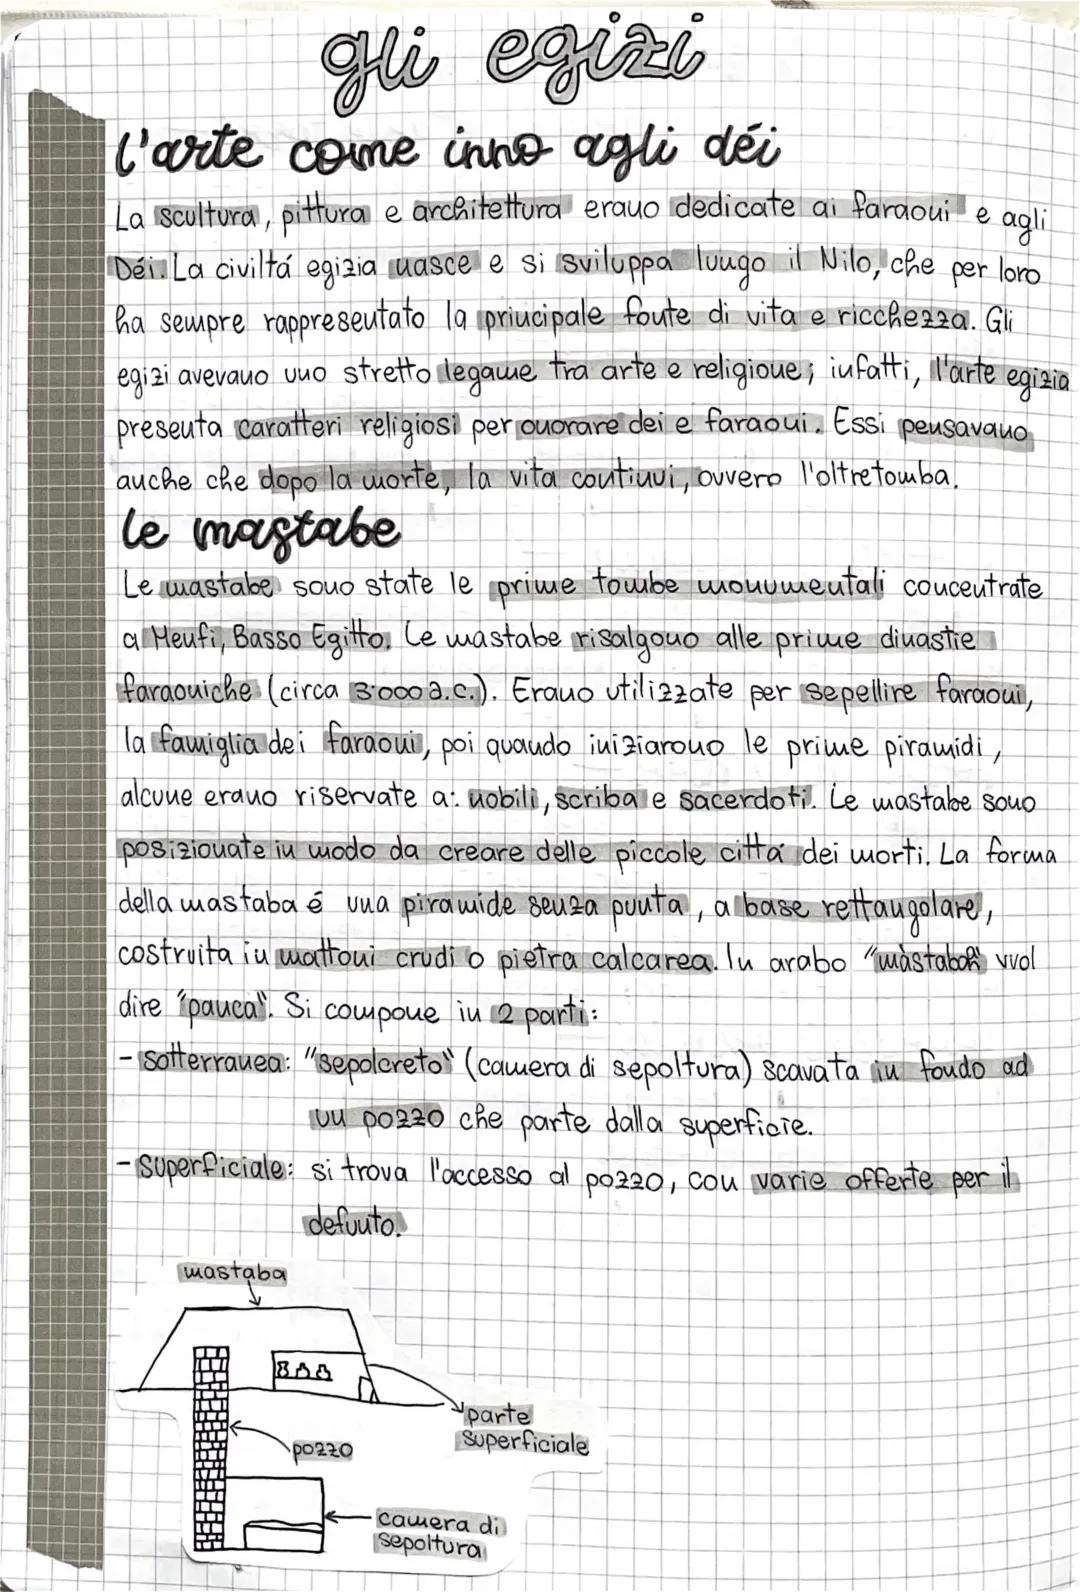 gli egizi
l'arte come inno agli déi
La scultura, pittura e architettura erano dedicate ai faraoni e agli
Déi. La civiltá egizia nasce e si sviluppa lungo il Nilo, che per loro
ha sempre rappresentato la principale fonte di vita e ricchezza. Gli
egizi avevano uno stretto legame tra arte e religione; infatti, l'arte egizia
presenta caratteri religiosi per onorare dei e faraoni. Essi pensavano
anche che dopo la morte, la vita continui, ovvero l'oltretomba.
le mastabe
Le mastabe sono state le prime tombe monumentali concentrate
a Menfi, Basso Egitto. Le mastabe risalgono alle prime dinastie
faraoniche (circa 3.000 a.c.). Erano utilizzate per sepellire faraoni,
la famiglia dei faraoni, poi quando iniziarono le prime piramidi,
alcune erano riservate a: nobili, scriba e sacerdoti. Le mastabe sono
posizionate in modo da creare delle piccole cittá dei morti. La forma
della mastaba é una piramide senza punta, a base rettangolare,
costruita in mattoni crudi o pietra calcarea. In arabo "màstabah" vuol
dire "panca". Si compone in 2 parti:
- sotterranea: "sepolcreto" (camera di sepoltura) scavata in fondo ad
un pozzo che parte dalla superficie.
- superficiale: si trova l'accesso al pozzo, con varie offerte per il
defunto.
mastaba
parte
superficiale
pozzo
camera di
sepoltura